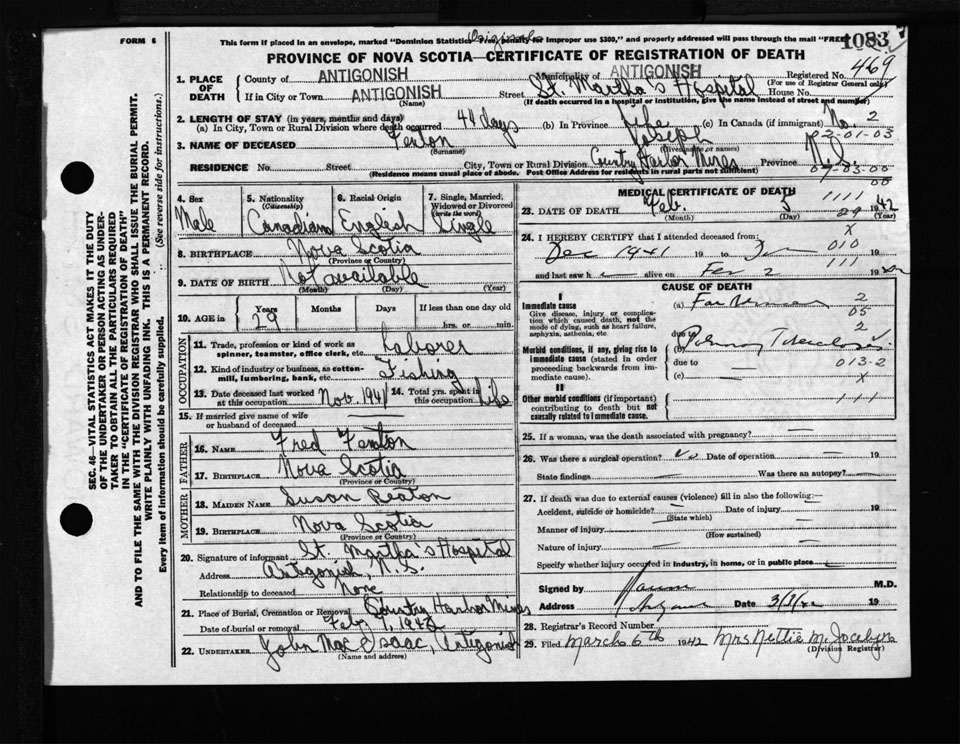 FORM 6
Original
This form if placed in an envelope, marked "Dominion Statistics—Free, penalty for improper use $300," and properly addressed will pass through the mail "FREE"
1083
PROVINCE OF NOVA SCOTIA—CERTIFICATE OF REGISTRATION OF DEATH
1. PLACE OF DEATH County of ANTIGONISH Municipality of ANTIGONISH Registered No. 469
(For use of Registrar General only)
If in City or Town ANTIGONISH Street St. Martha's Hospital House No.
(Name) (If death occurred in a hospital or institution, give the name instead of street and number)
2. LENGTH OF STAY (in years, months and days)
(a) In City, Town or Rural Division where death occurred 44 days (b) In Province life (c) In Canada (if immigrant) No. 2
02-01-03
3. NAME OF DECEASED Fenton Joseph
(Surname) (Given name or names)
RESIDENCE No. Street City, Town or Rural Division Country Harbor Mines Province N.S.
(Residence means usual place of abode. Post Office Address for residents in rural parts not sufficient) 07-03-00
00
4. Sex Male
5. Nationality (Citizenship) Canadian
6. Racial Origin English
7. Single, Married, Widowed or Divorced (write the word) Single
8. BIRTHPLACE Nova Scotia
(Province or Country)
9. DATE OF BIRTH Not available
(Month) (Day) (Year)
10. AGE in Years 29 Months Days If less than one day old
hrs. or min.
OCCUPATION
11. Trade, profession or kind of work as spinner, teamster, office clerk, etc. Laborer
12. Kind of industry or business, as cotton-mill, lumbering, bank, etc. Fishing
13. Date deceased last worked at this occupation Nov. 1941 14. Total yrs. spent in this occupation Life
15. If married give name of wife or husband of deceased —
FATHER
16. NAME Fred Fenton
17. BIRTHPLACE Nova Scotia
(Province or Country)
MOTHER
18. MAIDEN NAME Susan Reaton
19. BIRTHPLACE Nova Scotia
(Province or Country)
20. Signature of informant St. Martha's Hospital
Address Antigonish, N.S.
Relationship to deceased None
21. Place of Burial, Cremation or Removal Country Harbor Mines
Date of burial or removal Feb 7, 1942
22. UNDERTAKER John MacIsaac, Antigonish
(Name and address)
MEDICAL CERTIFICATE OF DEATH
1111
23. DATE OF DEATH Feb. 5 29 1942
(Month) (Day) (Year)
x
24. I HEREBY CERTIFY that I attended deceased from:
010
Dec 1941 19 to 19
111
and last saw h alive on Feb 2 19
CAUSE OF DEATH
Immediate cause (a) 2
Give disease, injury or complication which caused death, not the mode of dying, such as heart failure, asphyxia, asthenia, etc.
05
due to 2
Morbid conditions, if any, giving rise to immediate cause (stated in order proceeding backwards from immediate cause). (b) Pulmonary Tuberculosis
due to 013-2
(c) x
Other morbid conditions (if important) contributing to death but not causally related to immediate cause. 111
25. If a woman, was the death associated with pregnancy? —
26. Was there a surgical operation? No Date of operation — 19
State findings — Was there an autopsy? —
27. If death was due to external causes (violence) fill in also the following:—
Accident, suicide or homicide? — Date of injury — 19
(State which)
Manner of injury —
(How sustained)
Nature of injury —
Specify whether injury occurred in industry, in home, or in public place
Signed by M.D.
Address Date 3/3/42 19
28. Registrar's Record Number
29. Filed March 6th 1942 Mrs Nettie M. Jocelyn
(Division Registrar)
SEC. 46—VITAL STATISTICS ACT MAKES IT THE DUTY
OF THE UNDERTAKER OR PERSON ACTING AS UNDER-
TAKER TO OBTAIN ALL THE PARTICULARS REQUIRED
IN THE "CERTIFICATE OF REGISTRATION OF DEATH"
AND TO FILE THE SAME WITH THE DIVISION REGISTRAR WHO SHALL ISSUE THE BURIAL PERMIT.
WRITE PLAINLY WITH UNFADING INK. THIS IS A PERMANENT RECORD.
Every item of information should be carefully supplied. (See reverse side for instructions.)